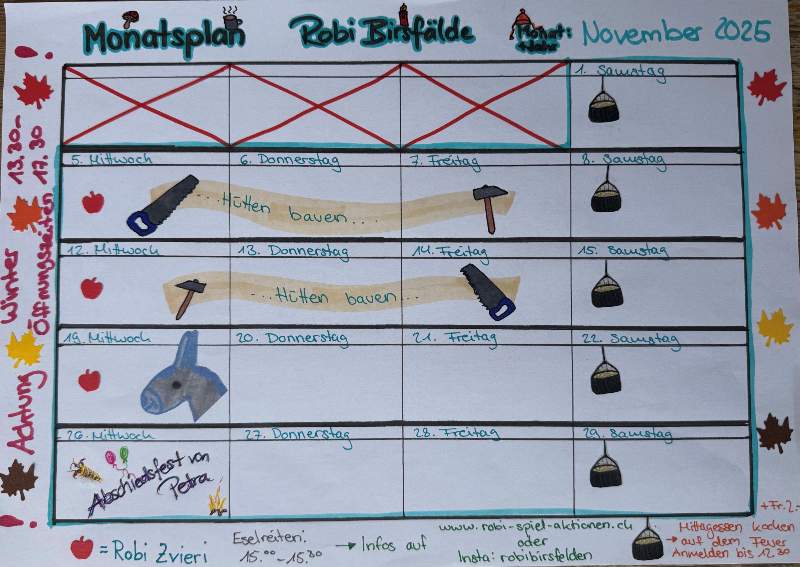 Monatsplan Robi Birsfälde Monat: November 2025
+Jahr
1. Samstag
5. Mittwoch 6. Donnerstag 7. Freitag 8. Samstag
...Hütten bauen....
12. Mittwoch 13. Donnerstag 14. Freitag 15. Samstag
...Hütten bauen...
19. Mittwoch 20. Donnerstag 21. Freitag 22. Samstag
26. Mittwoch 27. Donnerstag 28. Freitag 29. Samstag
Abschiedsfest von
Petra
! Achtung Winter 13.30-
Öffnungszeiten 17.30 !
= Robi Zvieri
Eselreiten:
15.00-15.30
→ Infos auf
www.robi-spiel-aktionen.ch
oder
Insta: robibirsfelden
+Fr. 2.-
Mittagessen kochen
→ auf dem Feuer
Anmelden bis 12.30